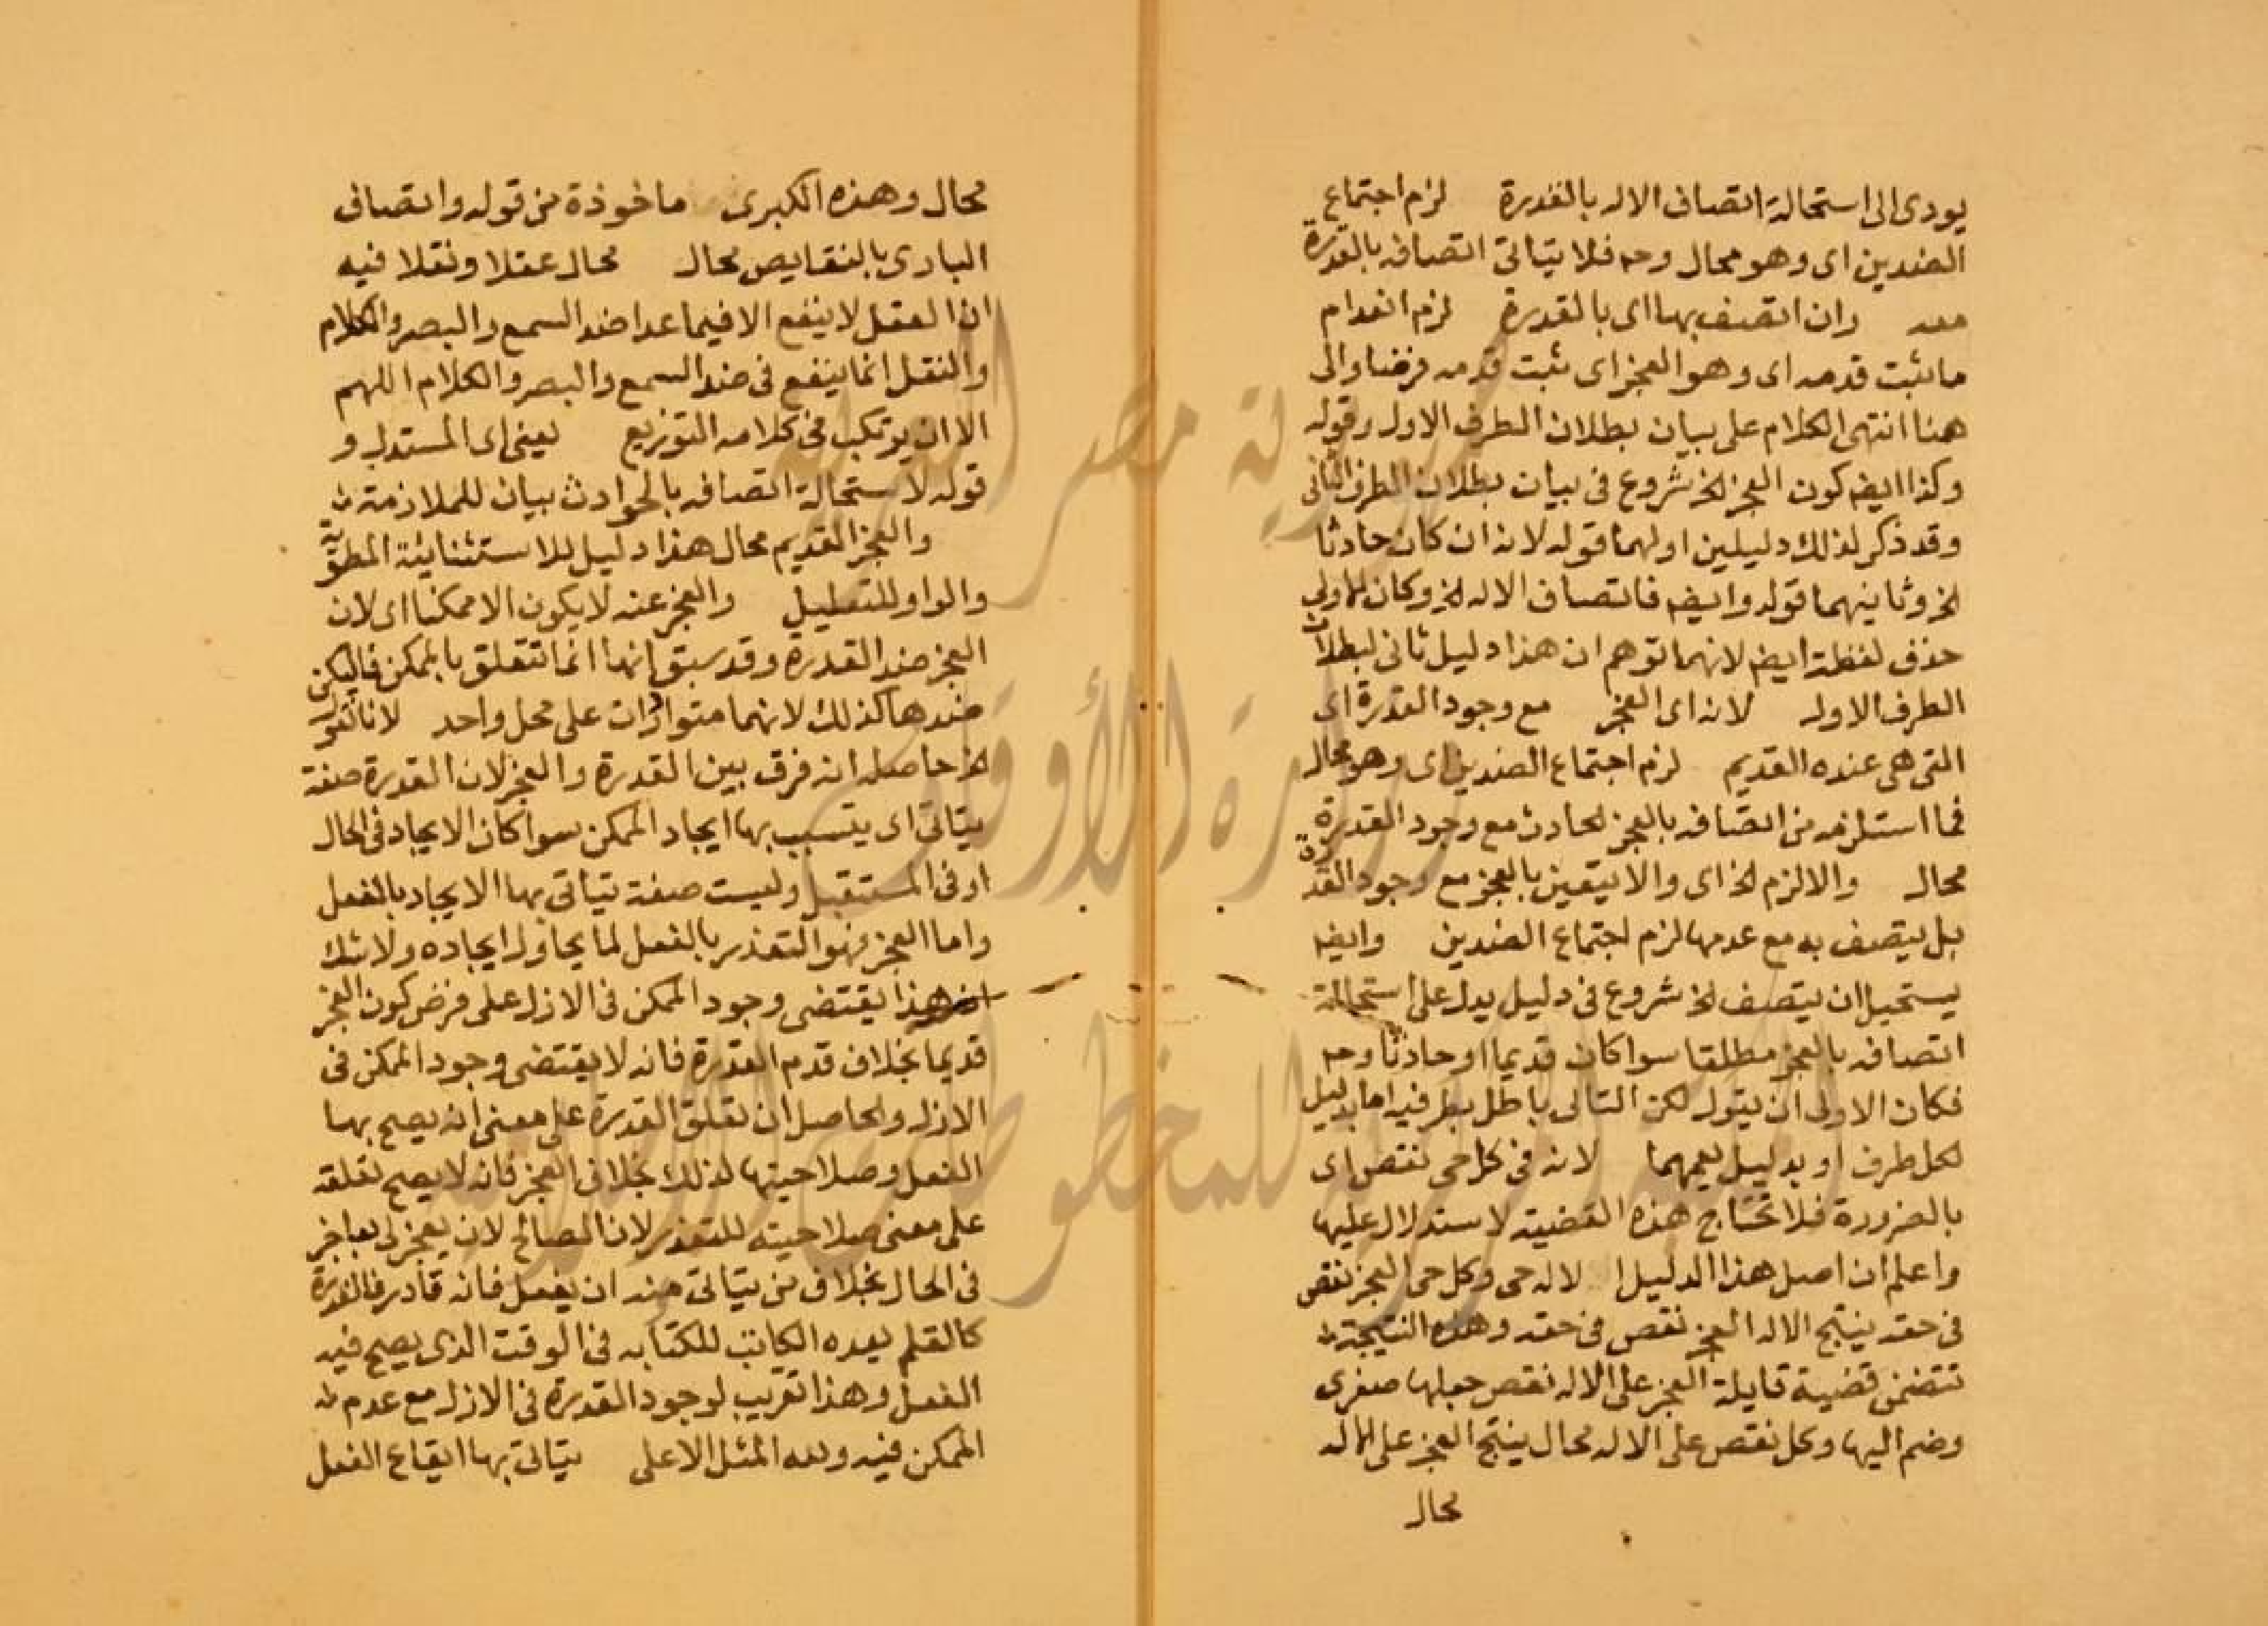 يودى الى استحالة اتصاف الاله بالقدرة لزم اجتماع
الضدين اى وهو محال وحـ فلا يتاتى اتصافه بالقدرة
معه وان اتصف بها اى بالقدرة لزم انعدام
ما ثبت قدمه اى وهو العجز اى ثبت قدمه فرضا والى
هنا انتهى الكلام على بيان بطلان الطرف الاول وقوله
وكذا ايضا كون العجز الخ شروع فى بيان بطلان الطرف الثانى
وقد ذكر لذلك دليلين اولهما قوله لانه ان كان حادثا
الخ وثانيهما قوله وايضا فاتصاف الاله الخ وكان الاولى
حذف لفظة ايضا لانهما توهم ان هذا دليل ثانى لبطلان
الطرف الاول لانه اى العجز مع وجود القدرة اى
التى هى عنده القديم لزم اجتماع الضدين اى وهو محال
فما استلزمه من اتصافه بالعجز الحادث مع وجود القدرة
محال والا لزم الخ اى والا يتعين بالعجز مع وجود القدرة
بل يتصف به مع عدمها لزم اجتماع الضدين وايضا
يستحيل ان يتصف الخ شروع فى دليل يدل على استحالة
اتصافه بالعجز مطلقا سوا كان قديما او حادثا وحـ
فكان الاولى ان يقول لكن التالى باطل بطرفيه اما بدليل
لكل طرف او بدليل يعمهما لانه فى كل حى نقص اى
بالضرورة فلا تحتاج هذه القضية لاستدلال عليها
واعلم ان اصل هذا الدليل الاله حى وكل حى العجز نقص
فى حقه ينتج الاله العجز نقص فى حقه وهذه النتيجة
تتضمن قضية قايلة العجز على الاله نقص جعلها صغرى
وضم اليها وكل نقص على الاله محال ينتج العجز على الاله
محال
محال وهذه الكبرى ماخوذة من قوله واتصاف
البارى بالنقايص محال محال عقلا ونقلا فيه
ان العقل لا ينفع الا فيما عدا ضد السمع والبصر والكلام
والنقل انما ينفع فى ضد السمع والبصر والكلام اللهم
الا ان يرتكب فى كلامه التوزيع يعنى اى المستدل و
قوله لاستحالة اتصافه بالحوادث بيان للملازمة
والعجز القديم محال هذا دليل للاستثنائية المطوية
والواو للتعليل والعجز عنه لا يكون الا ممكنا اى لان
العجز ضد القدرة وقد سبق انها انما تتعلق بالممكن فاليكن
ضدها كذلك لانهما متواردان على محل واحد لانا نقول
الخ حاصله انه فرق بين القدرة والعجز لان القدرة صفة
يتاتى اى يتسبب بها ايجاد الممكن سوا كان الايجاد فى الحال
او فى المستقبل وليست صفة يتاتى بها الايجاد بالفعل
واما العجز فهو التعذر بالفعل لما يحاول ايجاده ولا شك
ان هذا يقتضى وجود الممكن فى الازل على فرض كون العجز
قديما بخلاف قدم القدرة فانه لا يقتضى وجود الممكن فى
الازل والحاصل ان تعلق القدرة على معنى انه يصح بها
الفعل وصلاحيتها لذلك بخلاف العجز فانه لا يصح تعلقه
على معنى صلاحيته للتعذر لان الصالح لان يعجز ليس بعاجز
فى الحال بخلاف من يتاتى منه ان يفعل فانه قادر فالقدرة
كالقلم يعده الكاتب للكتابه فى الوقت الذى يصح فيه
الفعل وهذا تقريب لوجود القدرة فى الازل مع عدم
الممكن فيه ولله المثل الاعلى يتاتى بها ايقاع الفعل